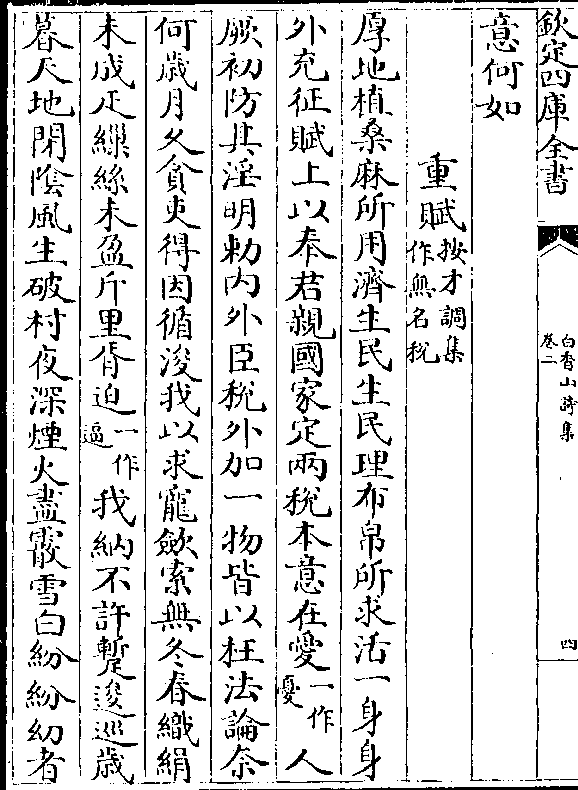 欽定四庫全書
白香山詩集
卷二
四
意何如
重賦按才調集作無名稅
厚地植桑麻所用濟生民生民理布帛所求活一身身
外充征賦上以奉君親國家定兩稅本意在愛一作憂人
厥初防其淫明勅內外臣稅外加一物皆以枉法論奈
何歲月久貪吏得因循浚我以求寵斂索無冬春織絹
未成疋繅絲未盈斤里胥迫一作逼我納不許暫逡巡歲
暮天地閉陰風生破村夜深煙火盡霰雪白紛紛幼者